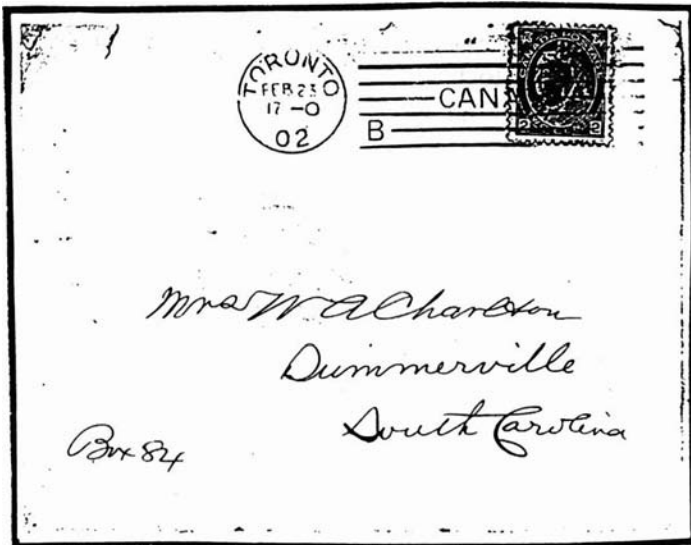 TORONTO
FEB 23
17-0
02
CAN
B
CANADA POSTAGE
2 2
Mrs W A Charlton
Summerville
South Carolina
Box 84